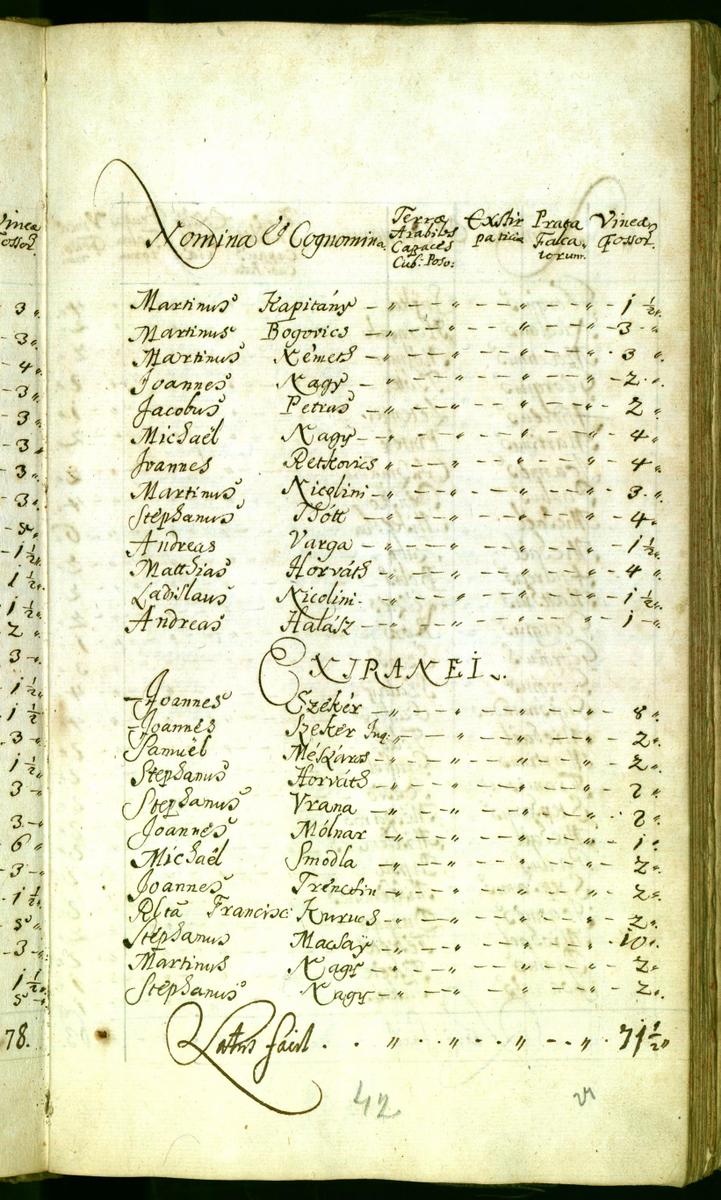 Nomina & Cognomina. Terræ Arabiles Capaces Cub: Poso: Exstirpaticiæ Prata Falcatorum. Vineæ Fossor.
Martinus Kapitány — „ — — „ — — „ — — „ — 1 ½ „
Martinus Bogovics — „ — — „ — — „ — — „ — 3 „
Martinus Németh — „ — — „ — — „ — — „ — 3 „
Joannes Nagy — „ — — „ — — „ — — „ — 2 „
Jacobus Petrus — „ — — „ — — „ — — „ — 2 „
Michaël Nagy — „ — — „ — — „ — — „ — 4 „
Joannes Retkovics — „ — — „ — — „ — — „ — 4 „
Martinus Nicolini — „ — — „ — — „ — — „ — 3 „
Stephanus Thótt — „ — — „ — — „ — — „ — 4 „
Andreas Varga — „ — — „ — — „ — — „ — 1 ½ „
Matthias Horváth — „ — — „ — — „ — — „ — 4 „
Ladislaus Nicolini — „ — — „ — — „ — — „ — 1 ½ „
Andreas Halász — „ — — „ — — „ — — „ — 1 „
EXTRANEI.
Joannes Szekér — „ — — „ — — „ — — „ — 8 „
Joannes Szekér Jun: — „ — — „ — — „ — — „ — 2 „
Samuël Mészáros — „ — — „ — — „ — — „ — 2 „
Stephanus Horváth — „ — — „ — — „ — — „ —
Stephanus Vrana — „ — — „ — — „ — — „ —
Joannes Mólnar — „ — — „ — — „ — — „ — 1 „
Michaël Smodla — „ — — „ — — „ — — „ — 2 „
Joannes Trénctin — „ — — „ — — „ — — „ — 2 „
Rlta Francisc: Kurucs — „ — — „ — — „ — — „ — 2 „
Stephanus Macsaÿ — „ — — „ — — „ — — „ — 10 „
Martinus Nagy — „ — — „ — — „ — — „ — 2 „
Stephanus Nagy — „ — — „ — — „ — — „ — 2 „
Latus facit . . „ . . „ . . „ — . „ . 71 ½ „
42